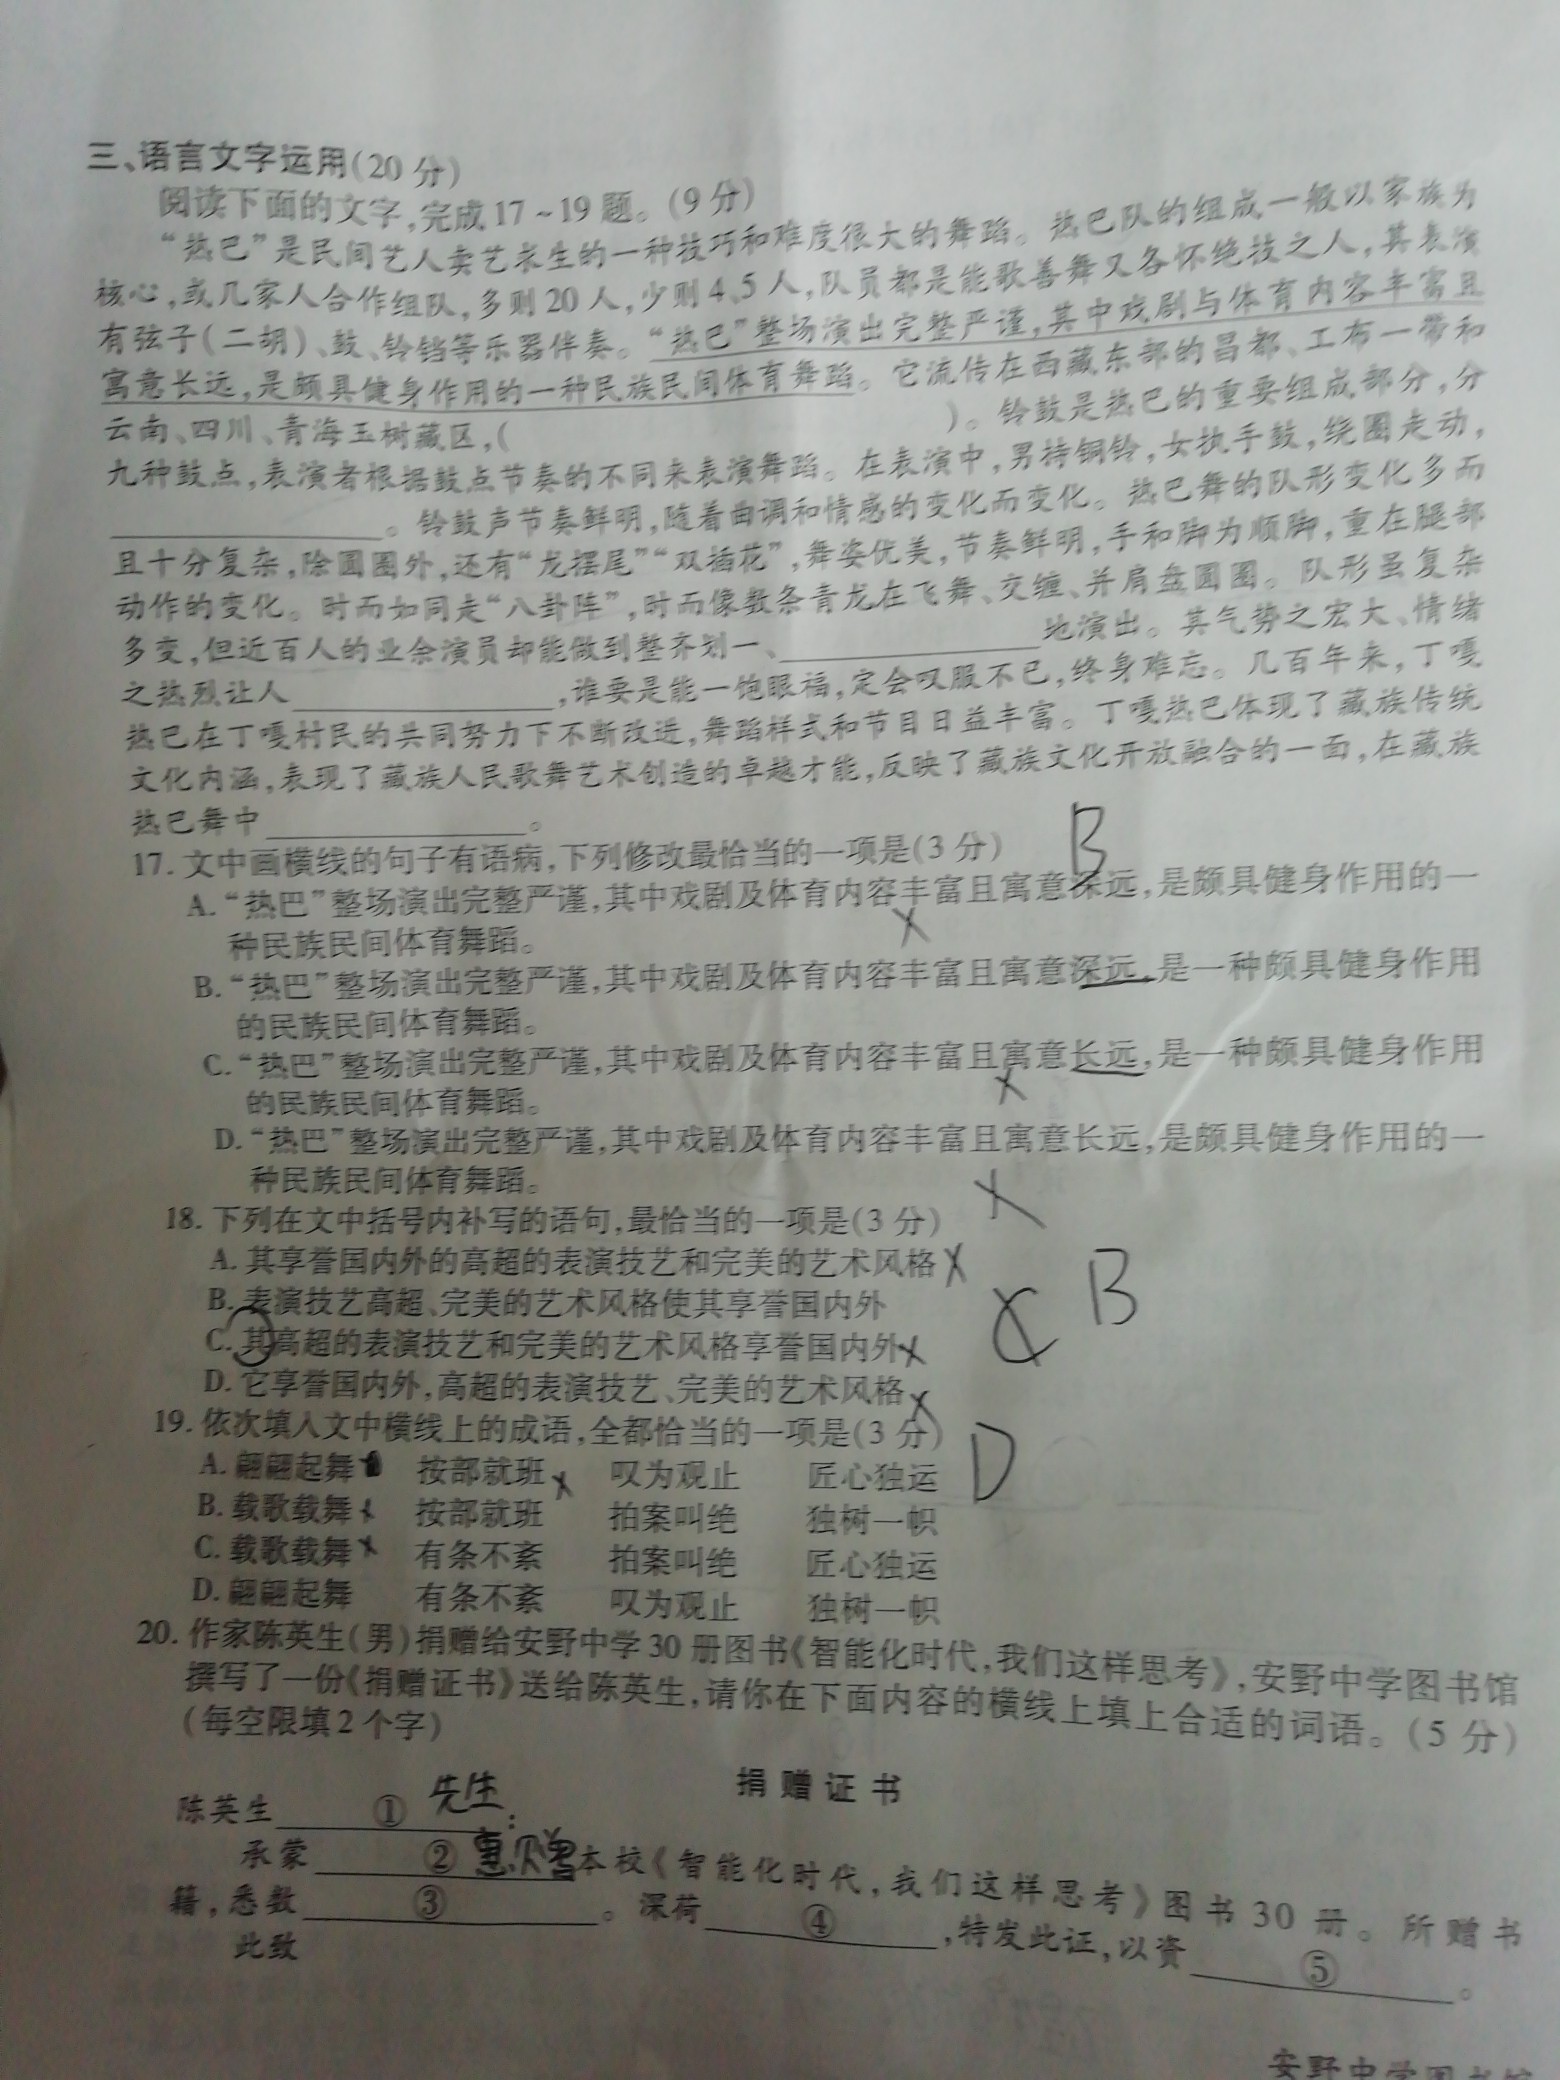 三、语言文字运用(20分)
阅读下面的文字,完成17~19题。(9分)
“热巴”是民间艺人卖艺求生的一种技巧和难度很大的舞蹈。热巴队的组成一般以家族为
核心,或几家人合作组队,多则20人,少则4、5人,队员都是能歌善舞又各怀绝技之人,其表演
有弦子(二胡)、鼓、铃铛等乐器伴奏。“热巴”整场演出完整严谨,其中戏剧与体育内容丰富且
寓意长远,是颇具健身作用的一种民族民间体育舞蹈。它流传在西藏东部的昌都、工布一带和
云南、四川、青海玉树藏区,( )。铃鼓是热巴的重要组成部分,分
九种鼓点,表演者根据鼓点节奏的不同来表演舞蹈。在表演中,男持铜铃,女执手鼓,绕圈走动,
____________。铃鼓声节奏鲜明,随着曲调和情感的变化而变化。热巴舞的队形变化多而
且十分复杂,除圆圈外,还有“龙摆尾”“双插花”,舞姿优美,节奏鲜明,手和脚为顺脚,重在腿部
动作的变化。时而如同走“八卦阵”,时而像数条青龙在飞舞、交缠、并肩盘圆圈。队形虽复杂
多变,但近百人的业余演员却能做到整齐划一、____________地演出。其气势之宏大、情绪
之热烈让人____________,谁要是能一饱眼福,定会叹服不已,终身难忘。几百年来,丁嘎
热巴在丁嘎村民的共同努力下不断改进,舞蹈样式和节目日益丰富。丁嘎热巴体现了藏族传统
文化内涵,表现了藏族人民歌舞艺术创造的卓越才能,反映了藏族文化开放融合的一面,在藏族
热巴舞中____________。
17. 文中画横线的句子有语病,下列修改最恰当的一项是(3分) B
A. “热巴”整场演出完整严谨,其中戏剧及体育内容丰富且寓意深远,是颇具健身作用的一
种民族民间体育舞蹈。
B. “热巴”整场演出完整严谨,其中戏剧及体育内容丰富且寓意深远,是一种颇具健身作用
的民族民间体育舞蹈。
C. “热巴”整场演出完整严谨,其中戏剧及体育内容丰富且寓意长远,是一种颇具健身作用
的民族民间体育舞蹈。
D. “热巴”整场演出完整严谨,其中戏剧及体育内容丰富且寓意长远,是颇具健身作用的一
种民族民间体育舞蹈。
18. 下列在文中括号内补写的语句,最恰当的一项是(3分)
A. 其享誉国内外的高超的表演技艺和完美的艺术风格 B
B. 表演技艺高超、完美的艺术风格使其享誉国内外
C. 其高超的表演技艺和完美的艺术风格享誉国内外 C
D. 它享誉国内外,高超的表演技艺、完美的艺术风格
19. 依次填入文中横线上的成语,全都恰当的一项是(3分) D
A. 翩翩起舞 按部就班 叹为观止 匠心独运
B. 载歌载舞 按部就班 拍案叫绝 独树一帜
C. 载歌载舞 有条不紊 拍案叫绝 匠心独运
D. 翩翩起舞 有条不紊 叹为观止 独树一帜
20. 作家陈英生(男)捐赠给安野中学30册图书《智能化时代,我们这样思考》,安野中学图书馆
撰写了一份《捐赠证书》送给陈英生,请你在下面内容的横线上填上合适的词语。(5分)
(每空限填2个字)
捐赠证书
陈英生 ① 先生:
承蒙 ② 惠赠本校《智能化时代,我们这样思考》图书30册。所赠书
籍,悉数 ③ 。深荷 ④ ,特发此证,以资 ⑤ 。
此致
安野中学图书馆